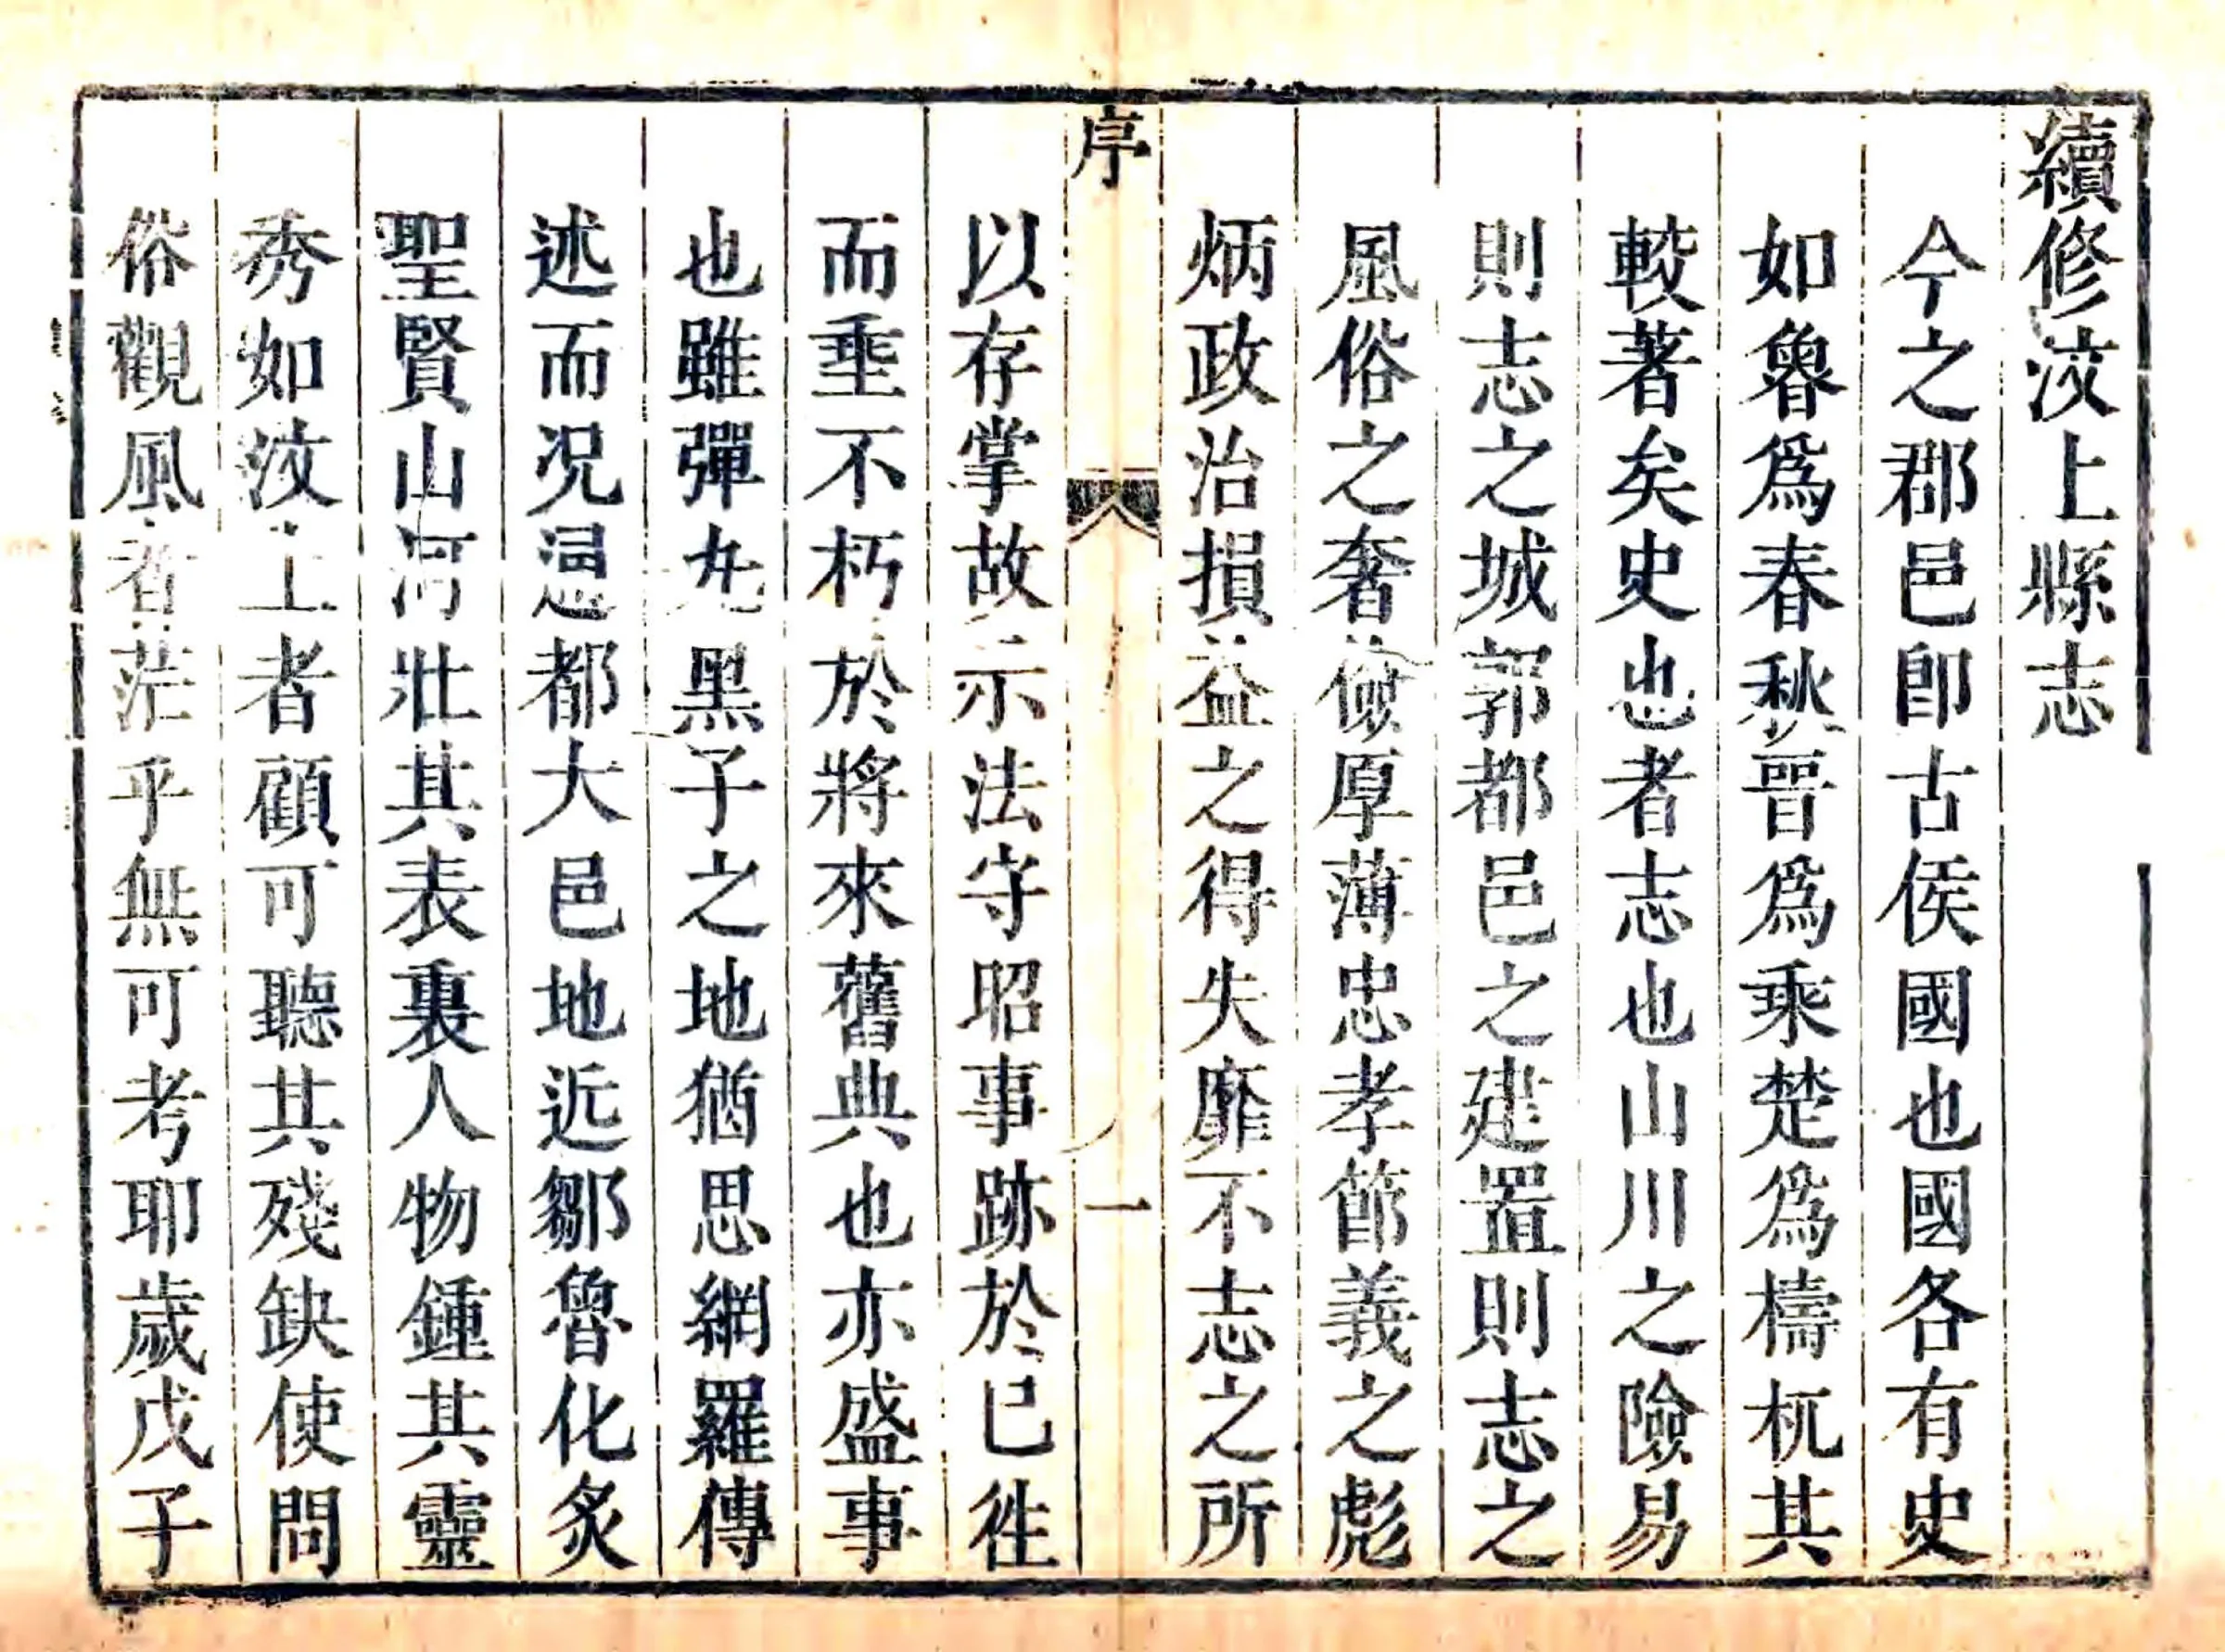 續修汶上縣志
今之郡邑卽古侯國也國各有史
如魯爲春秋晉爲乘楚爲檮杌其
較著矣史也者志也山川之險易
則志之城郭都邑之建置則志之
風俗之奢儉厚薄忠孝節義之彪
炳政治損益之得失靡不志之所
序
一
以存掌故示法守昭事跡於已徃
而垂不朽於將來舊典也亦盛事
也雖彈丸黑子之地猶思網羅傳
述而况都大邑地近鄒魯化炙
聖賢山河壯其表裏人物鍾其靈
秀如汶上者顧可聽其殘缺使問
俗觀風者茫乎無可考耶歲戊子